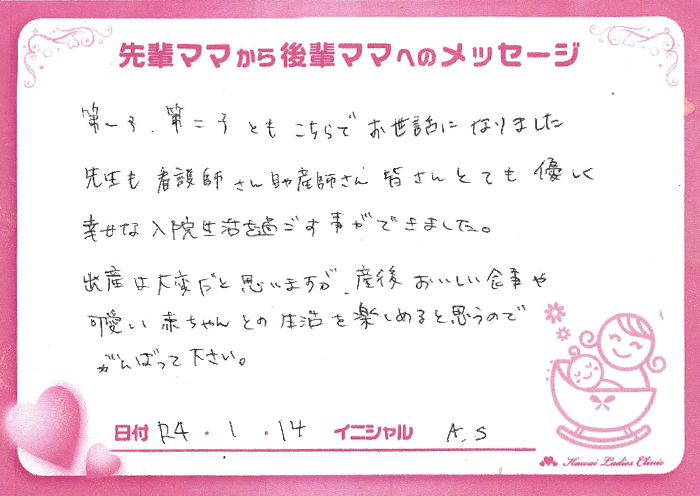 先輩ママから後輩ママへのメッセージ
第一子、第二子ともこちらでお世話になりました
先生も看護師さん助産師さん皆さんとても優しく
幸せな入院生活を過ごす事ができました。
出産は大変だと思いますが、産後おいしい食事や
可愛い赤ちゃんとの生活を楽しめると思うので
がんばって下さい。
日付 R4・1・14 イニシャル A.S
Kawai Ladies Clinic